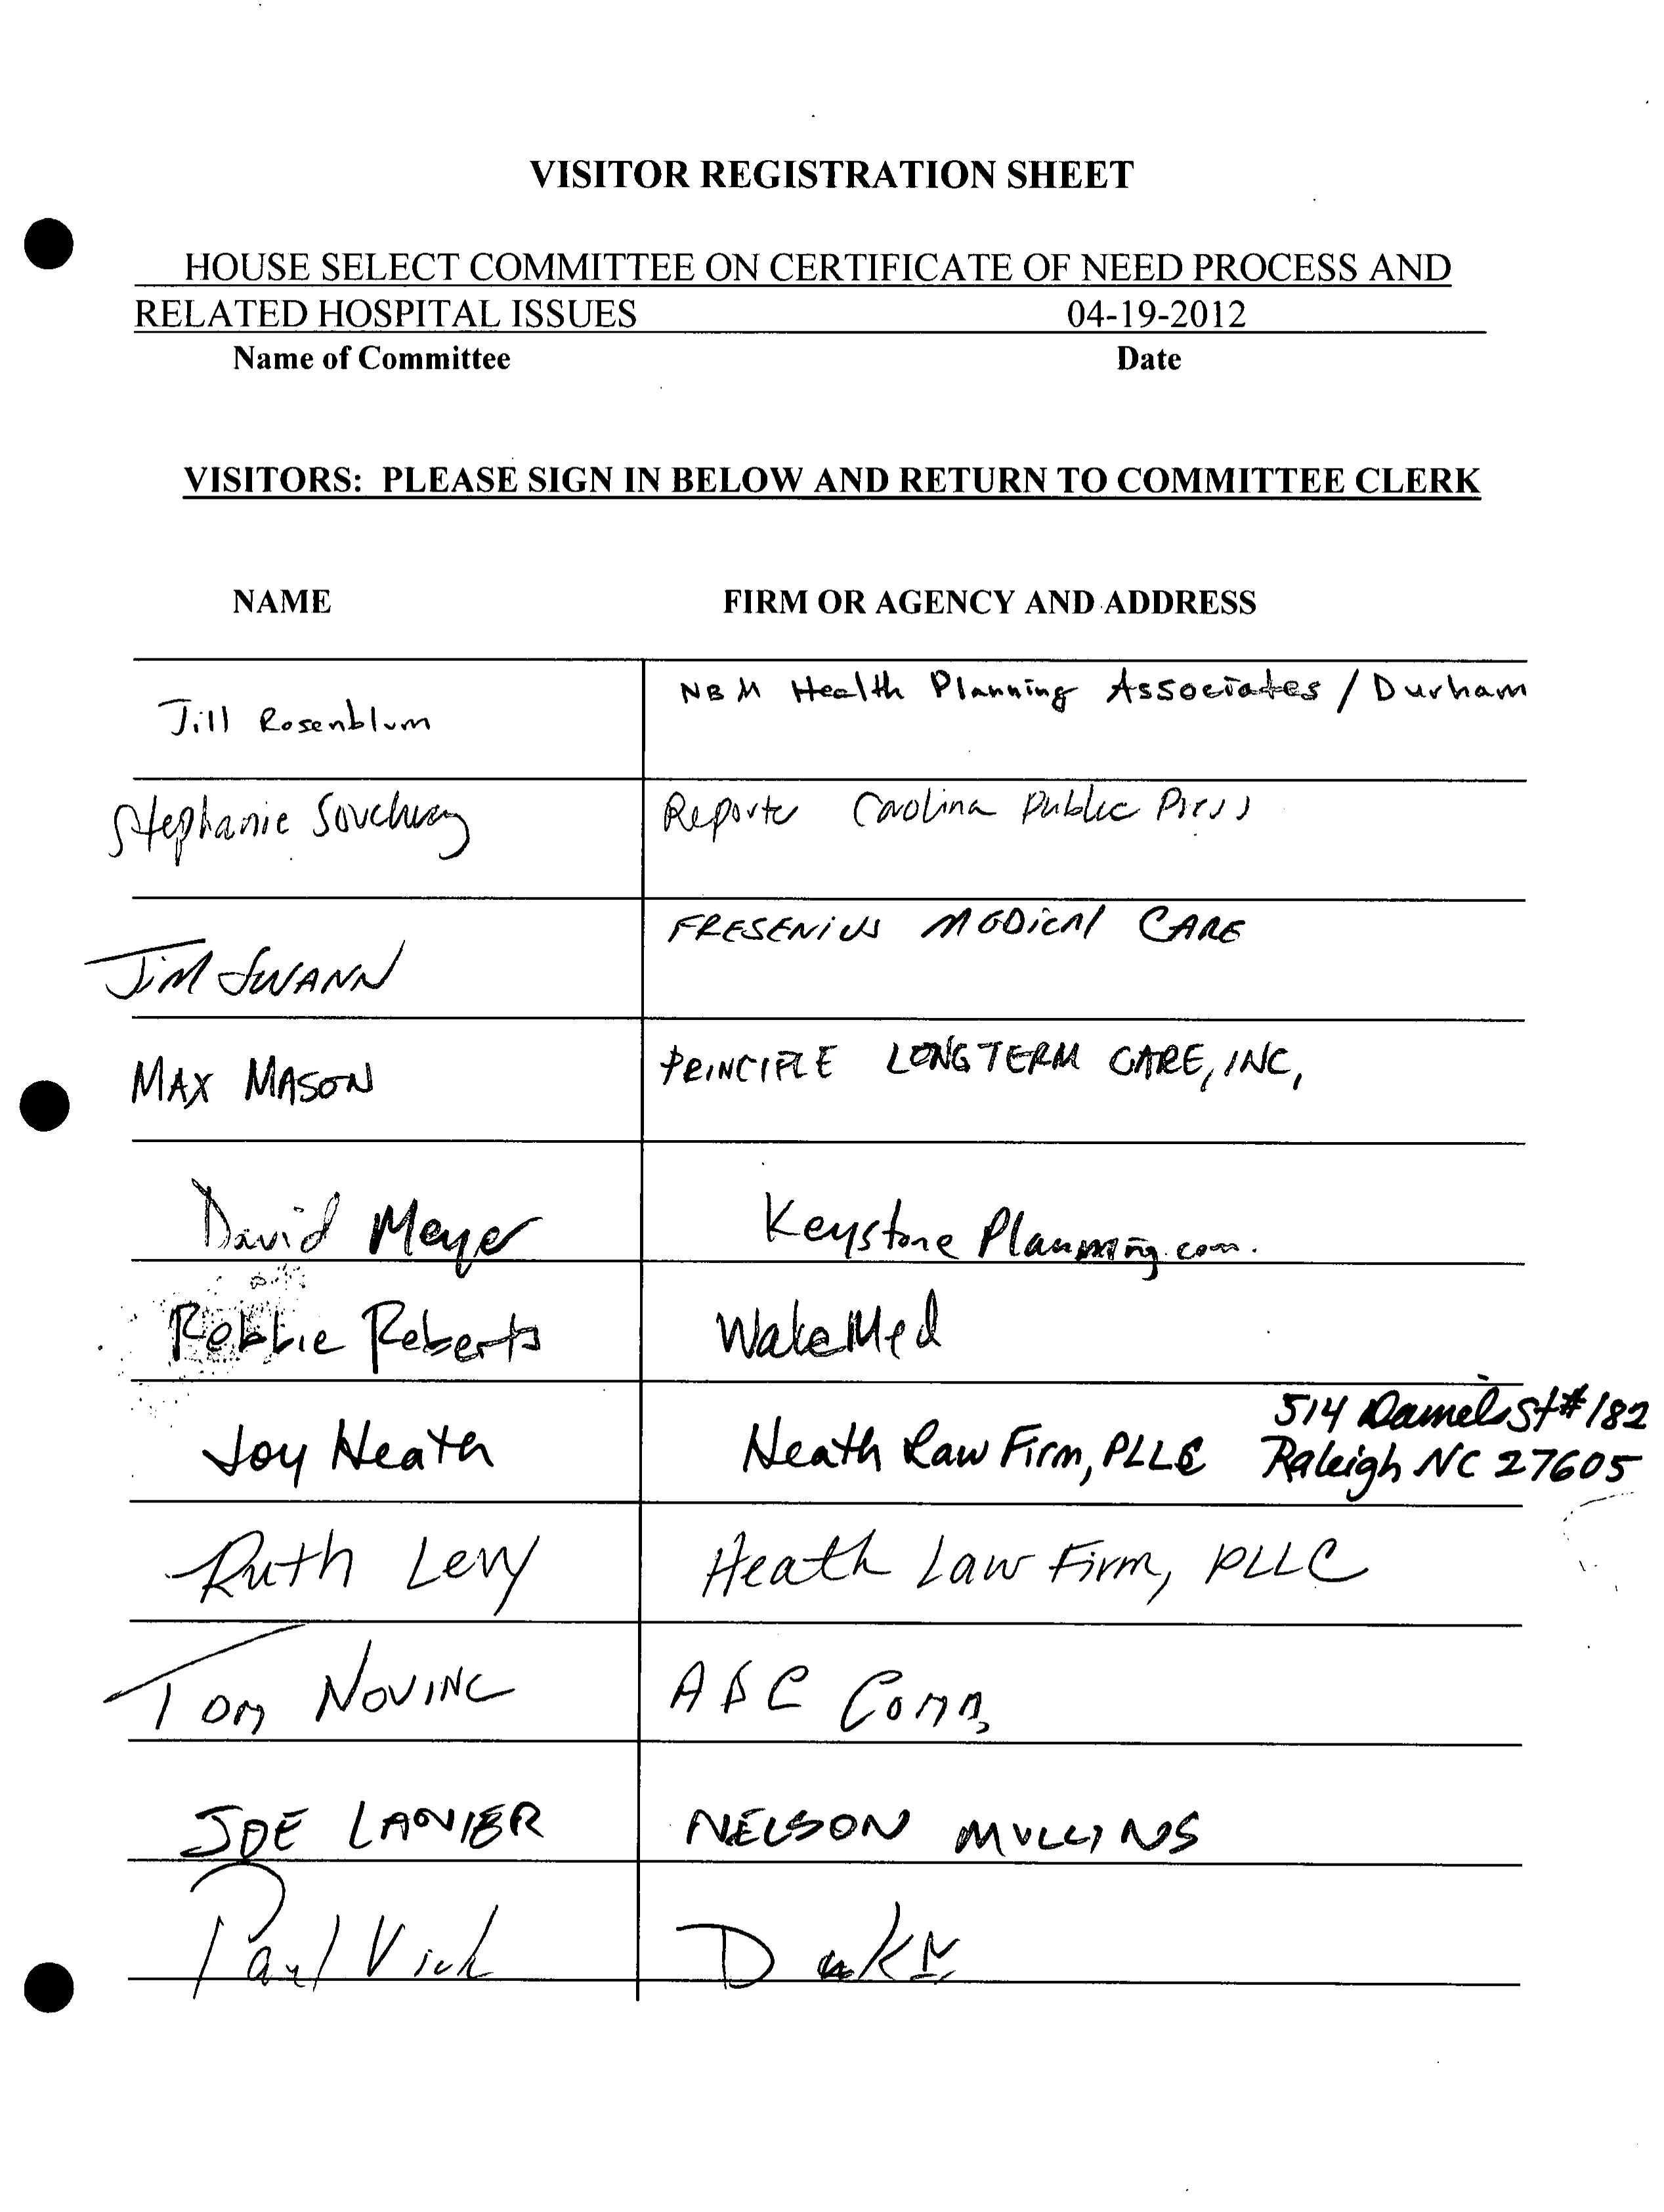 VISITOR REGISTRATION SHEET
HOUSE SELECT COMMITTEE ON CERTIFICATE OF NEED PROCESS AND
RELATED HOSPITAL ISSUES 04-19-2012
Name of Committee Date
VISITORS: PLEASE SIGN IN BELOW AND RETURN TO COMMITTEE CLERK
NAME FIRM OR AGENCY AND ADDRESS
Jill Rosenblum NBM Health Planning Associates / Durham
Stephanie Carolina Public Press
JIM SWANN FRESENIUS MEDICAL CARE
MAX MASON PRINCIPLE LONG TERM CARE, INC,
David Meyer Keystone Planning.com.
Robbie Roberts WakeMed
Joy Heath Heath Law Firm, PLLC 514 Daniels St #182
Raleigh NC 27605
Ruth Levy Heath Law Firm, PLLC
Tom NOVINC Comm,
JOE LANIER NELSON MULLINS
Paul Vick Duke